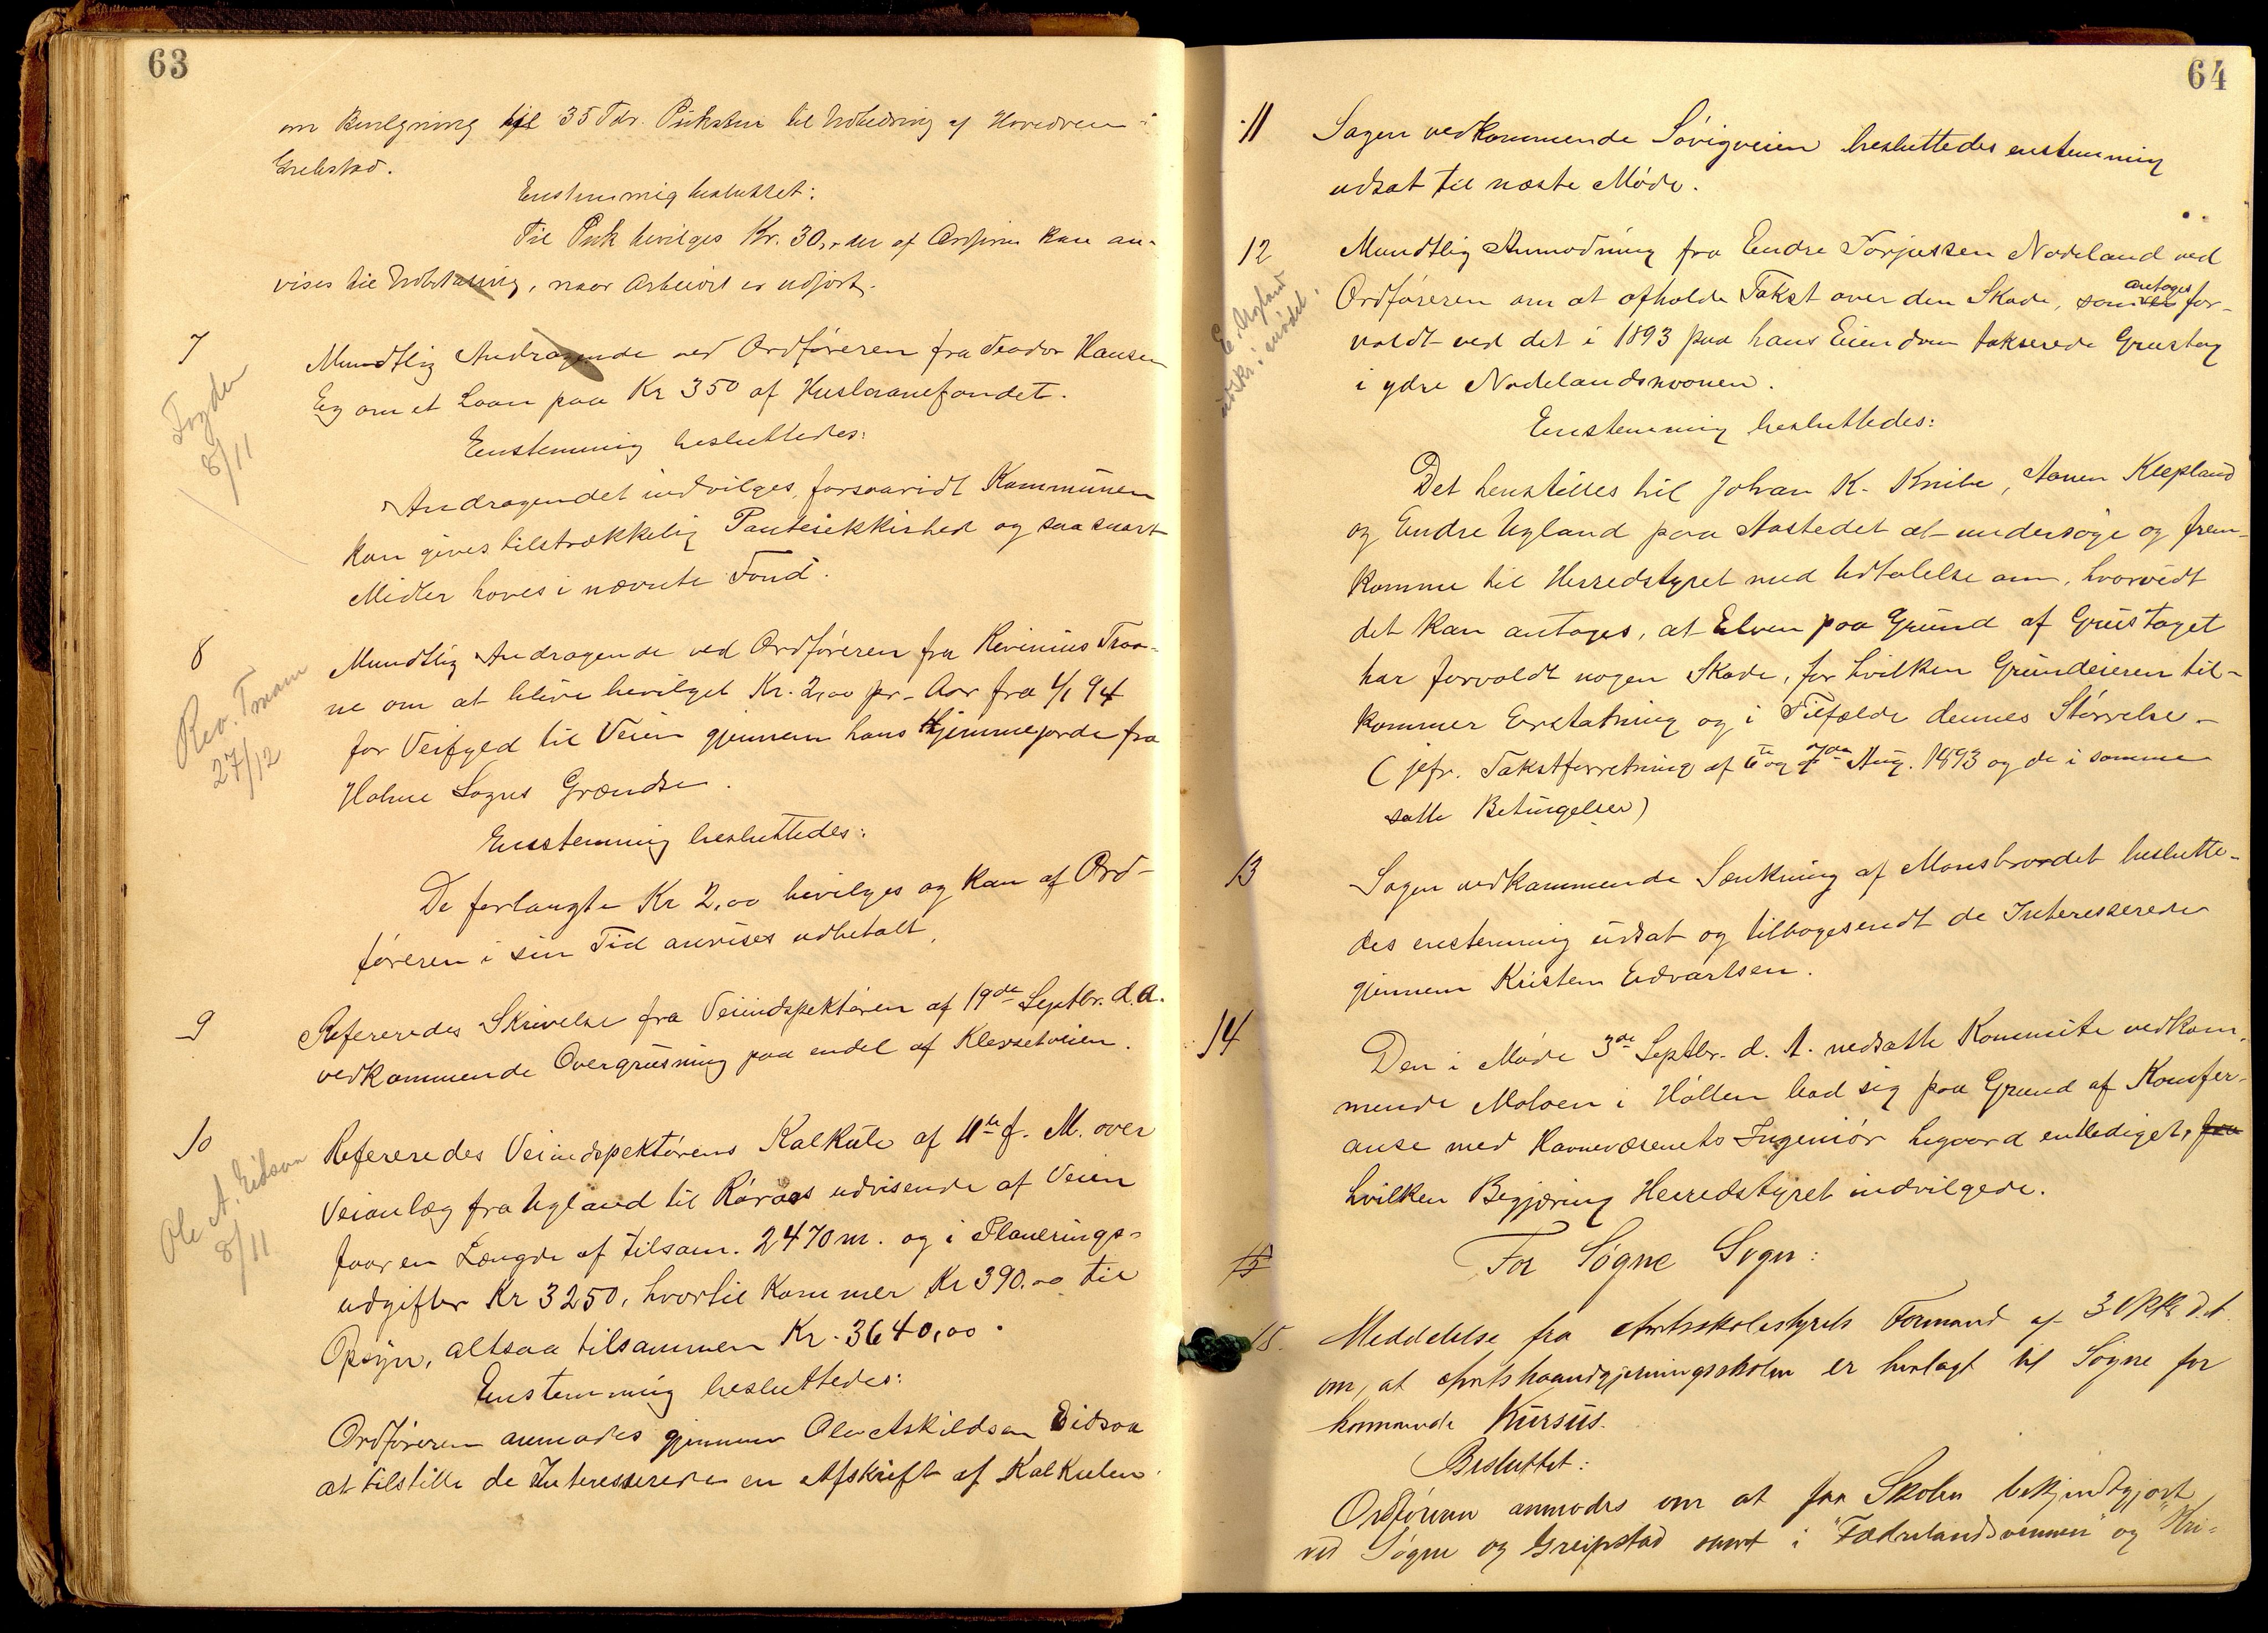 63
om Bevilgning til 35 Tdr. Puksten til Udbedring af Hovedveien i
Grebstad.
Enstemmig besluttet:
Til Puk bevilges Kr. 30,- der af Ordføreren kan an-
vises til Udbetaling, naar Arbeidet er udført.
7
Mundtlig Andragende ved Ordføreren fra Teodor Hansen
Eg om et Laan paa Kr 350 af Huslaanefondet.
8/11
Enstemmig besluttedes:
Andragendet indvilges, forsaavidt Kommunen
kan gives tilstrækkelig Pantesikkerhed og saa snart
Midler haves i nævnte Fond.
8
Mundtlig Andragende ved Ordføreren fra Revinius Traa-
ne om at blive bevilget Kr. 2,00 pr. Aar fra 1/1 94
for Veifyld til Veien gjennem hans Hjemmejorde fra
Holme Sogns Grændse.
Rev. Traane
27/12
Enstemmig besluttedes:
De forlangte Kr 2,00 bevilges og kan af Ord-
føreren i sin Tid anvises udbetalt.
9
Refereredes Skrivelse fra Veiindspektøren af 19de Septbr. d. A.
vedkommende Overgrusning paa endel af Klevsetveien.
10
Refereredes Veiindspektørens Kalkule af 11te f. M. over
Veianlæg fra Ugland til Røraas udvisende af Veien
faar en Længde af tilsam. 2470 m. og i Planerings-
udgifter Kr 3250, hvortil kommer Kr 390.00 til
Opsyn, altsaa tilsammen Kr. 3640,00.
Ole A. Eidsaa
8/11
Enstemmig besluttedes:
Ordføreren anmodes gjennem Ole Askildsen Eidsaa
at tilstille de Interesserede en Afskrift af Kalkulen.
64
11
Sagen vedkommende Søvigveien besluttedes enstemmig
udsat til næste Møde.
12
Mundtlig Anmodning fra Endre Torjussen Nodeland ved
Ordføreren om at afholde Takst over den Skade, som antages for-
voldt ved det i 1893 paa hans Eiendom takserede Grustag
i ydre Nodelandsmonen.
E. Ugland
udskr. i mødet.
Enstemmig besluttedes:
Det henstilles til Johan K. Knibe, Aanen Klepland
og Endre Ugland paa Aastedet at undersøge og frem-
komme til Herredstyret med Udtalelse om, hvorvidt
det kan antages, at Elven paa Grund af Grustaget
har forvoldt nogen Skade, for hvilken Grundeieren til-
kommer Erstatning og i Tilfælde dennes Størrelse -
(jefr. Takstforretning af 6te og 7de Aug. 1893 og de i samme
satte Betingelser)
13
Sagen vedkommende Sænkning af Monsbroddet beslutte-
des enstemmig udsat og tilbagesendt de Interesserede
gjennem Kristen Edvartsen.
14
Den i Møde 3de Septbr. d. A. nedsatte Kommite vedkom-
mende Moloen i Høllen bad sig paa Grund af Konfer-
anse med Havnevæsenets Ingeniør Legaard entlediget,
hvilken Begjæring Herredstyret indvilgede.
15
For Søgne Sogn:
15.
Meddelelse fra Amtsskolestyrets Formand af 30/ d. A.
om, at Amtshaandgjerningsskolen er henlagt til Søgne for
kommende Kursus.
Besluttet:
Ordføreren anmodes om at faa Skolen bekjendtgjort
ved Søgne og Greipstad samt i "Fædrelandsvennen" og "Kri-